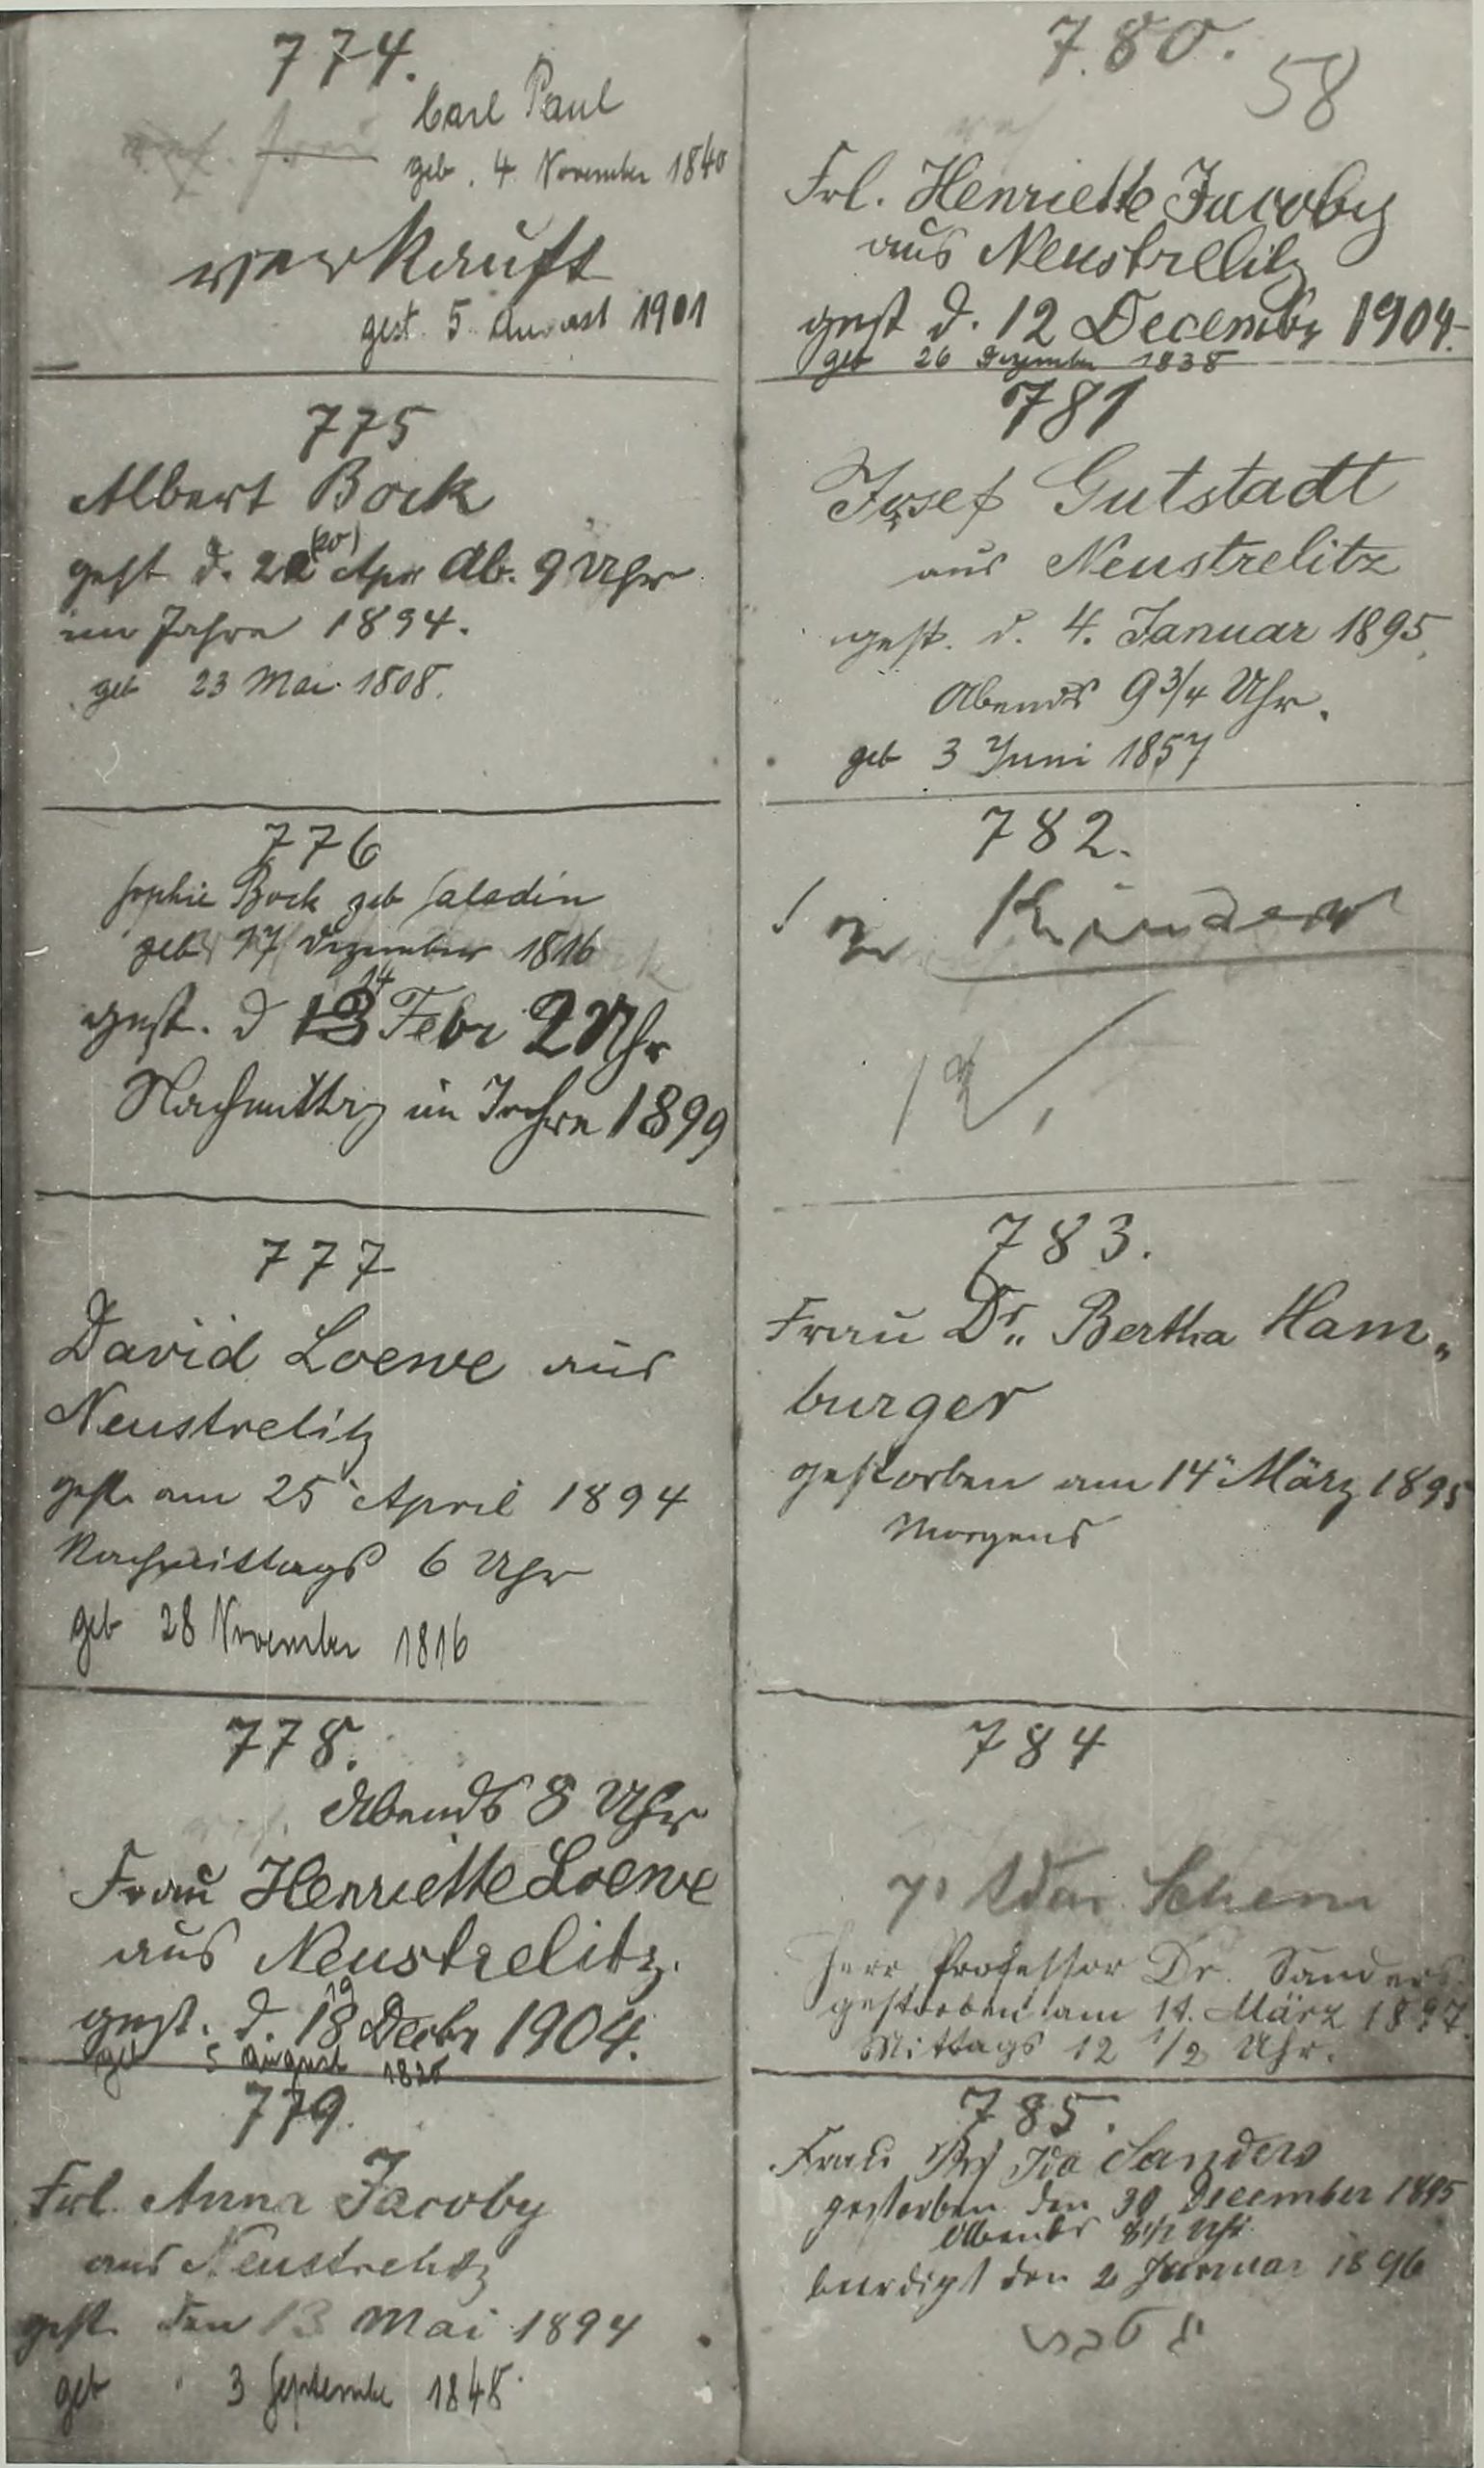 774.
Carl Paul
geb. 4 November 1840
verkauft
gest. 5. August 1901
775
Albert Bock
(20)
gest d. 22 Apr Ab. 9 Uhr
im Jahre 1894.
geb 23 Mai 1808.
776
Sophie Bock geb Saladin
geb 17 Dezember 1816
14
gest. d 13 Febr 2 Uhr
Nachmittag im Jahre 1899
777
David Loewe aus
Neustrelitz
gest. am 25 April 1894
Nachmittags 6 Uhr
geb 28 November 1816
778.
Abends 8 Uhr
Frau Henriette Loewe
aus Neustrelitz.
19
gest. d. 18 Decbr 1904.
geb 5 August
779.
Frl. Anna Jacoby
aus Neustrelitz
gest. den 13 Mai 1894
geb 3 September 1848.
780.
58
Frl. Henriette Jacoby
aus Neustrelitz
gest d. 12 December 1904.
geb 26 Dezember 1838
781
Josef Gutstadt
aus Neustrelitz
gest. d. 4. Januar 1895
Abends 9 3/4 Uhr.
geb 3 Juni 1857
782.
Kinder
783.
Frau Dr. Bertha Ham„
burger
gestorben am 14 März 1895
Morgens
784
Herr Professor Dr. Sanders
gestorben am 11. März 1897.
Mittags 12 1/2 Uhr.
785.
Frau Prf Ida Sanders
gestorben den 30 December 1895
Abends 8 1/2 Uhr
beerdigt den 2 Januar 1896